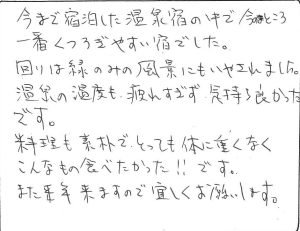 今まで宿泊した温泉宿の中で今のところ
一番くつろぎやすい宿でした。
回りは緑のみの風景にもいやされました。
温泉の温度も、疲れすぎず、気持ち良かった
です。
料理も素朴で、とっても体に重くなく
こんなもの食べたかった!!です。
また来年来ますので宜しくお願いします。